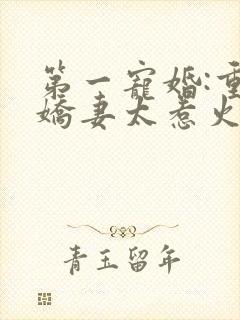 第一寵婚:重
嬌妻太惹火
青玉留年